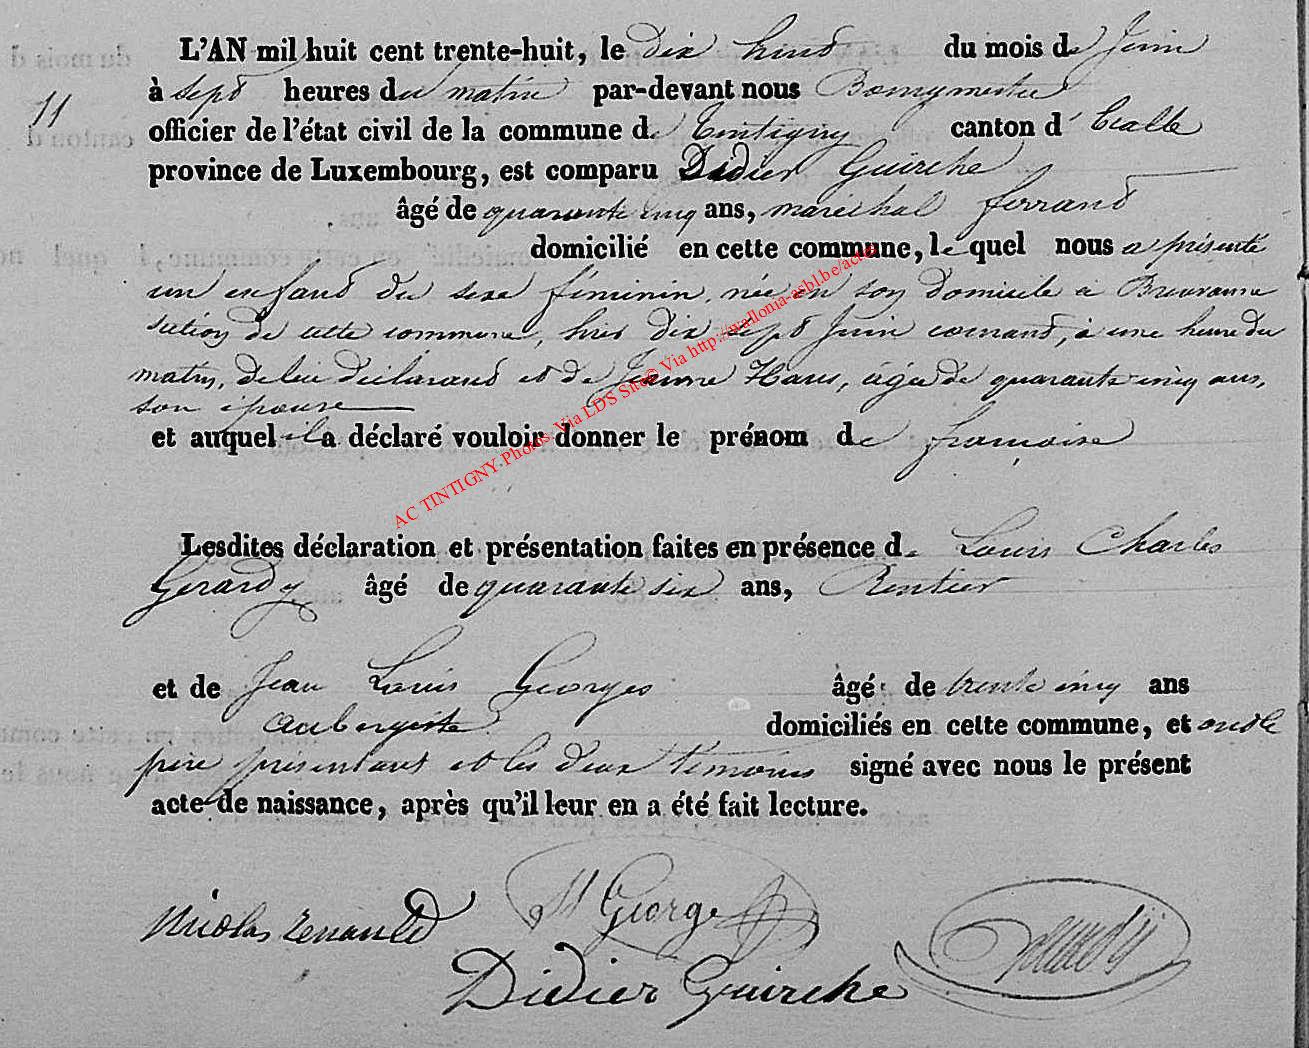 L'AN mil huit cent trente-huit, le dix huit du mois de Juin
11
à sept heures du matin par-devant nous Bourgmestre
officier de l'état civil de la commune de Tintigny canton d'Etalle
province de Luxembourg, est comparu Didier Guirche
âgé de quarante cinq ans, maréchal ferrant
domicilié en cette commune, lequel nous a présenté
un enfant du sexe féminin, née en son domicile à Breuvanne
section de cette commune, hier dix sept Juin courant, à une heure du
matin, de lui déclarant et de Jeanne Haus, âgée de quarante cinq ans,
son épouse
et auquel il a déclaré vouloir donner le prénom de françoise
AC TINTIGNY.Photos. Via LDS Site© Via http://wallonia-asbl.be/actes
Lesdites déclaration et présentation faites en présence de Louis Charles
Gerardy âgé de quarante six ans, Rentier
et de Jean Louis Georges âgé de trente cinq ans
aubergiste domiciliés en cette commune, et ont le
père présentant et les deux témoins signé avec nous le présent
acte de naissance, après qu'il leur en a été fait lecture.
Nicolas renauld George
Didier Guirche